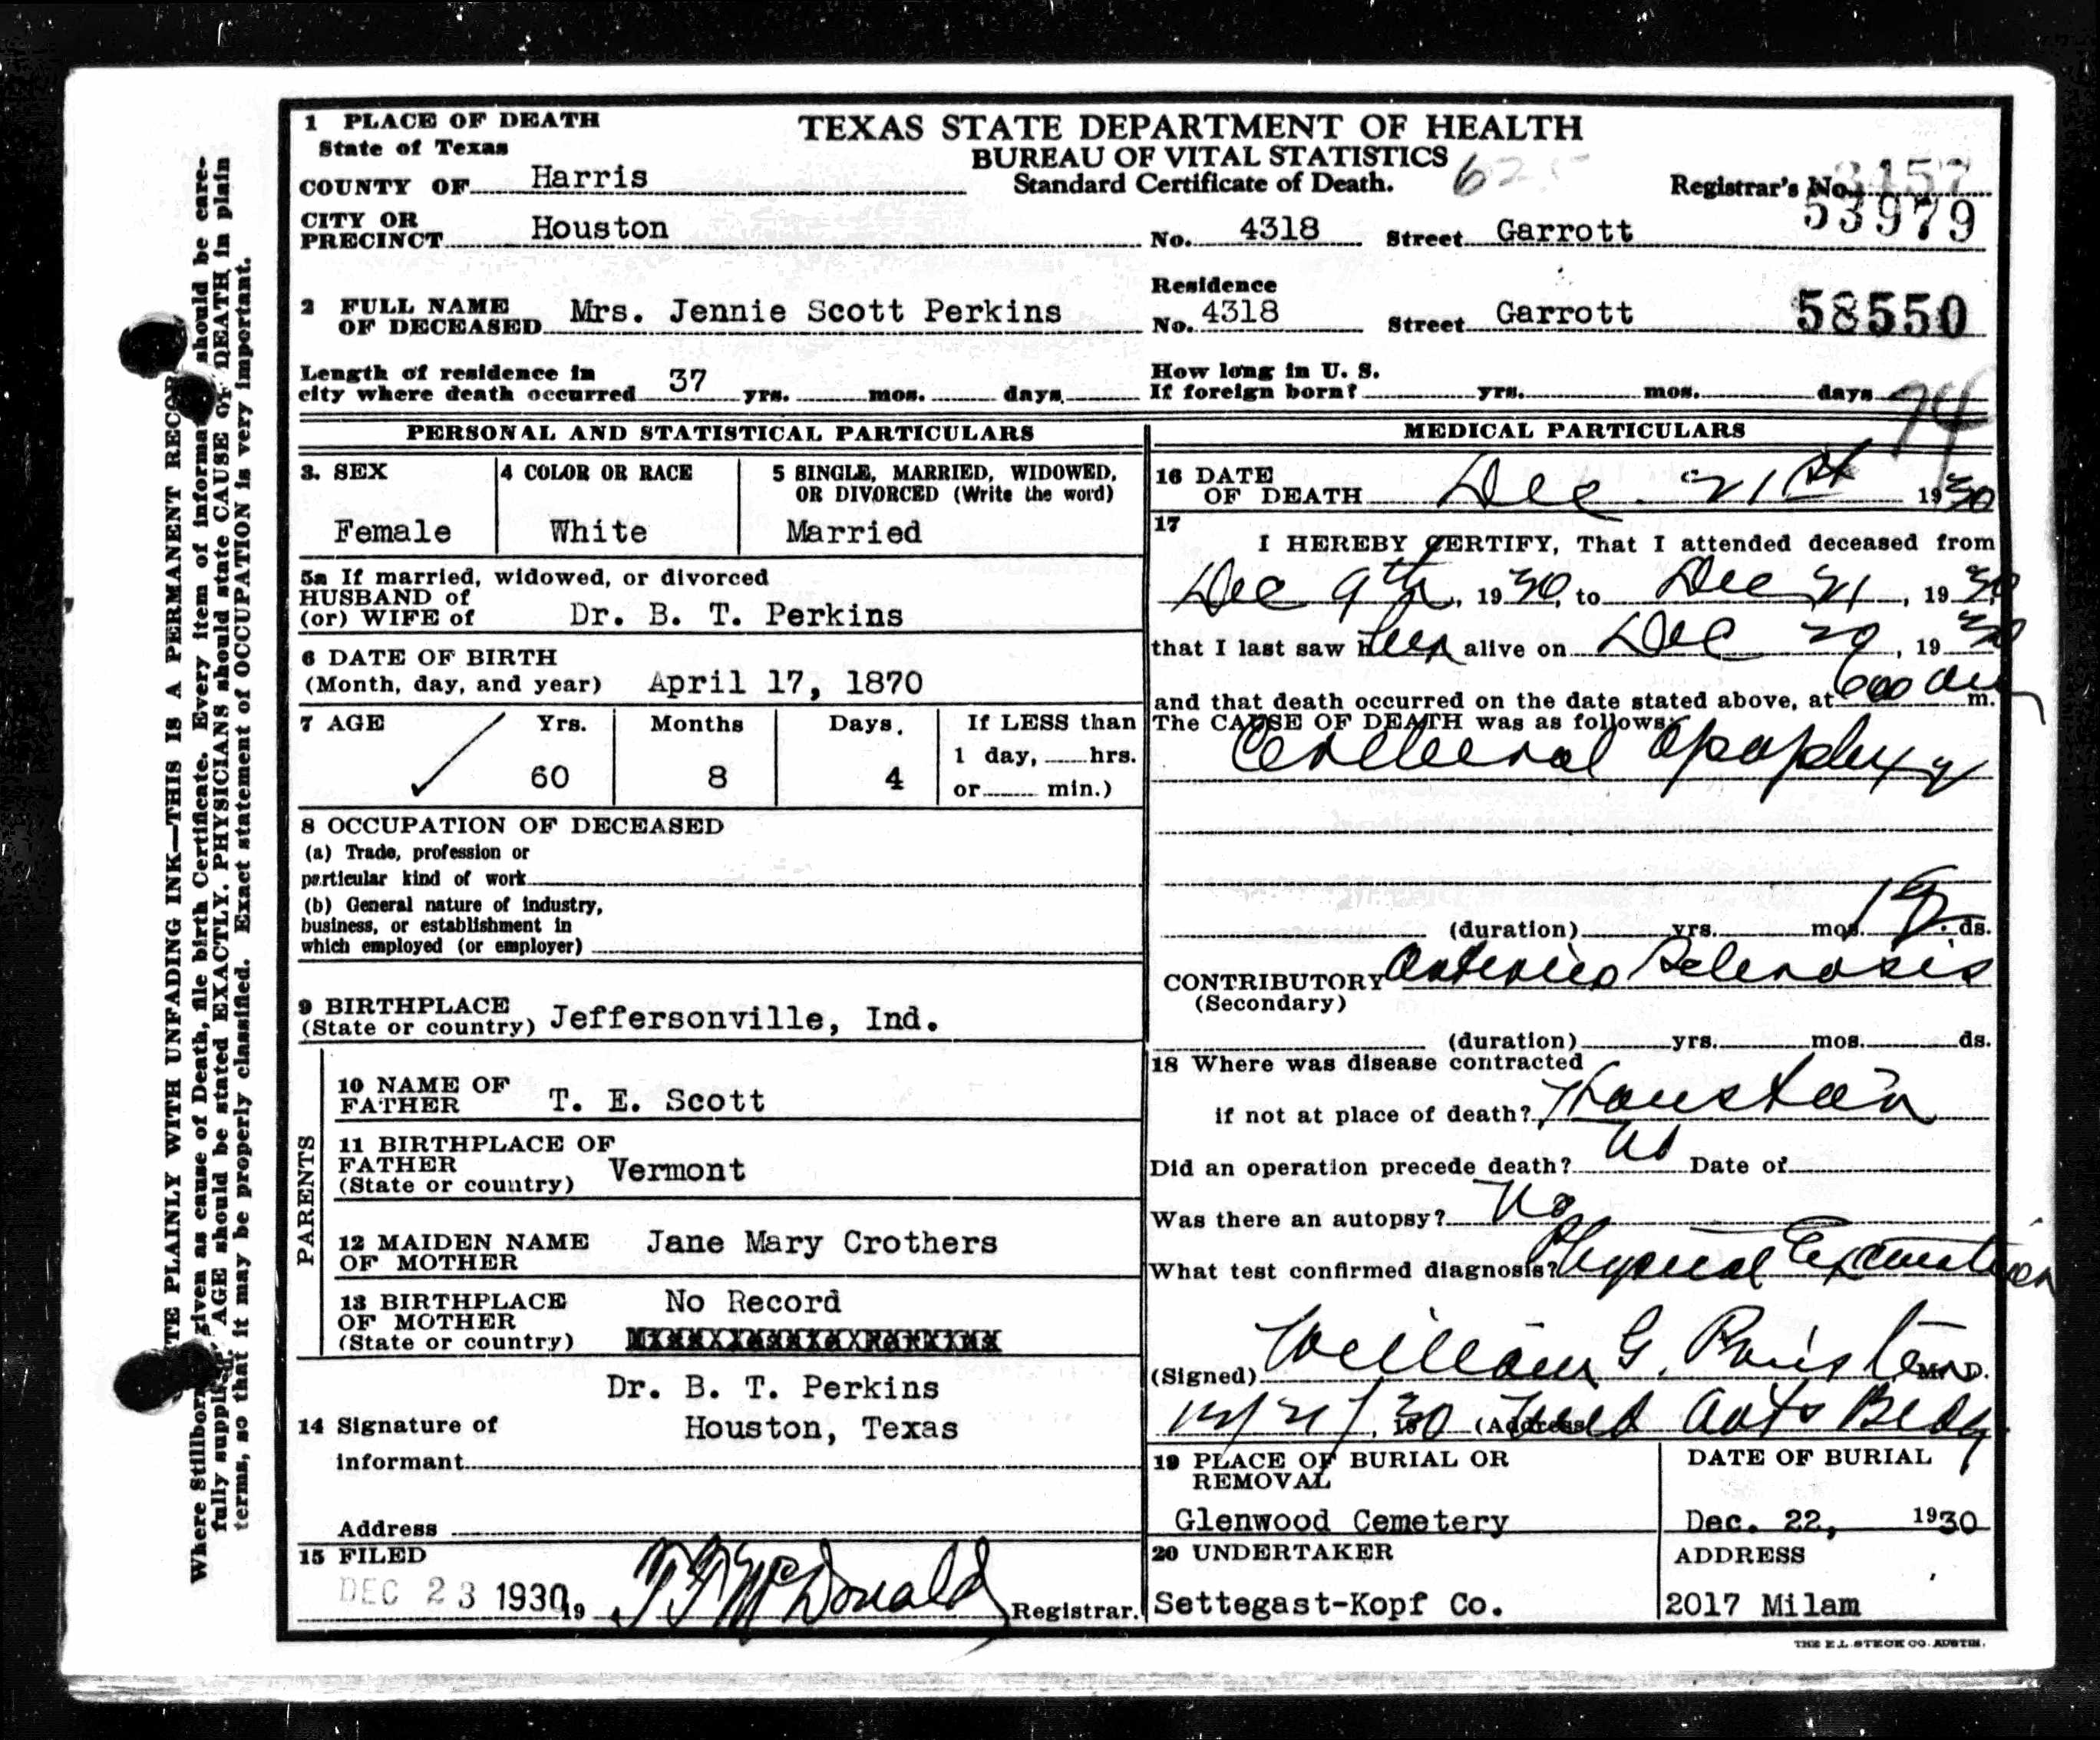 1 PLACE OF DEATH
State of Texas
COUNTY OF Harris
CITY OR PRECINCT Houston
TEXAS STATE DEPARTMENT OF HEALTH
BUREAU OF VITAL STATISTICS
Standard Certificate of Death.
Registrar's No. 3157
53979
No. 4318 Street Garrott
2 FULL NAME OF DECEASED Mrs. Jennie Scott Perkins
Residence
No. 4318 Street Garrott 58550
Length of residence in
city where death occurred 37 yrs. mos. days.
How long in U. S.
If foreign born? yrs. mos. days
PERSONAL AND STATISTICAL PARTICULARS
3. SEX
Female
4 COLOR OR RACE
White
5 SINGLE, MARRIED, WIDOWED,
OR DIVORCED (Write the word)
Married
5a If married, widowed, or divorced
HUSBAND of
(or) WIFE of Dr. B. T. Perkins
6 DATE OF BIRTH
(Month, day, and year) April 17, 1870
7 AGE Yrs. Months Days. If LESS than
1 day, hrs.
60 8 4 or min.)
8 OCCUPATION OF DECEASED
(a) Trade, profession or
particular kind of work
(b) General nature of industry,
business, or establishment in
which employed (or employer)
9 BIRTHPLACE
(State or country) Jeffersonville, Ind.
PARENTS
10 NAME OF
FATHER T. E. Scott
11 BIRTHPLACE OF
FATHER
(State or country) Vermont
12 MAIDEN NAME
OF MOTHER Jane Mary Crothers
13 BIRTHPLACE
OF MOTHER
(State or country) No Record
Dr. B. T. Perkins
14 Signature of Houston, Texas
informant
Address
15 FILED
DEC 23 1930 19 McDonald Registrar.
MEDICAL PARTICULARS
74
16 DATE
OF DEATH Dec. 21st 1930
17
I HEREBY CERTIFY, That I attended deceased from
Dec 9th, 1930, to Dec 21, 1930,
that I last saw her alive on Dec 20, 1930
and that death occurred on the date stated above, at 600 am m.
The CAUSE OF DEATH was as follows:
Cerebral Apoplexy
(duration) yrs. mos. 12 ds.
CONTRIBUTORY Arterio Sclerosis
(Secondary)
(duration) yrs. mos. ds.
18 Where was disease contracted
if not at place of death? Houston
Did an operation precede death? No Date of
Was there an autopsy? No
What test confirmed diagnosis? Physical Examination
(Signed) William G. M. D.
12/21/, 1930 (Address) Med Arts Bldg
19 PLACE OF BURIAL OR
REMOVAL
Glenwood Cemetery
DATE OF BURIAL
Dec. 22, 1930
20 UNDERTAKER
Settegast-Kopf Co.
ADDRESS
2017 Milam
THE E.L. STECK CO. AUSTIN.
TE PLAINLY WITH UNFADING INK—THIS IS A PERMANENT RECOR
Where Stillborn given as cause of Death, file birth Certificate. Every item of informat should be care-
fully supplied. AGE should be stated EXACTLY. PHYSICIANS should state CAUSE OF DEATH in plain
terms, so that it may be properly classified. Exact statement of OCCUPATION is very important.